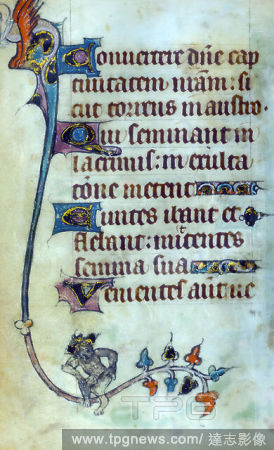 Convertere dñe cap
tivitatem nr̃am: si
cut torrens in austro.
Qui seminant in
lacrimis: in exulta
tõne metent
Euntes ibant et
flebant: mitentes
semina sua
Venientes aut̃ ve
TPG
www.tpgnews.com / 達志影像